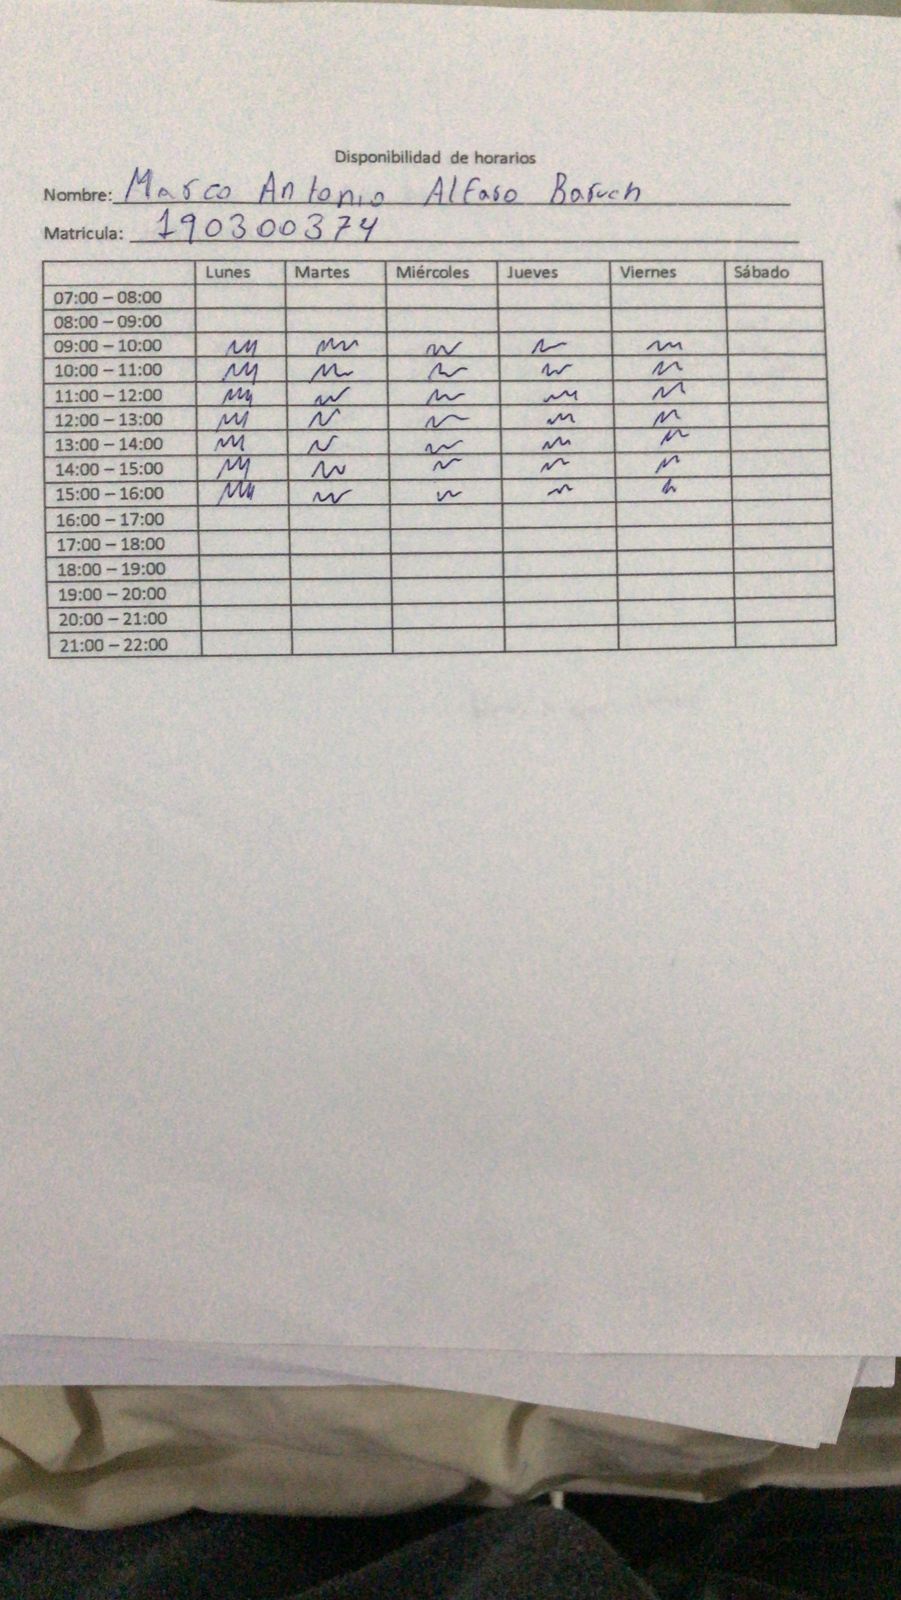 Disponibilidad de horarios
Nombre: Marco Antonio Alfaro Baruch
Matricula: 190300374
Lunes Martes Miércoles Jueves Viernes Sábado
07:00 – 08:00
08:00 – 09:00
09:00 – 10:00
10:00 – 11:00
11:00 – 12:00
12:00 – 13:00
13:00 – 14:00
14:00 – 15:00
15:00 – 16:00
16:00 – 17:00
17:00 – 18:00
18:00 – 19:00
19:00 – 20:00
20:00 – 21:00
21:00 – 22:00